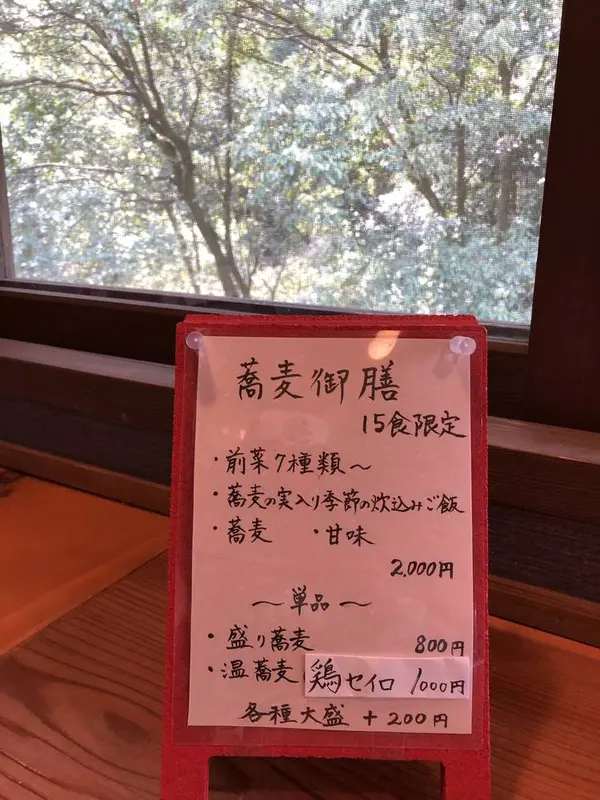 蕎麦御膳
15食限定
・前菜7種類〜
・蕎麦の実入り季節の炊込みご飯
・蕎麦 ・甘味
2,000円
〜単品〜
・盛り蕎麦 800円
・温蕎麦 鶏セイロ 1000円
各種大盛 +200円